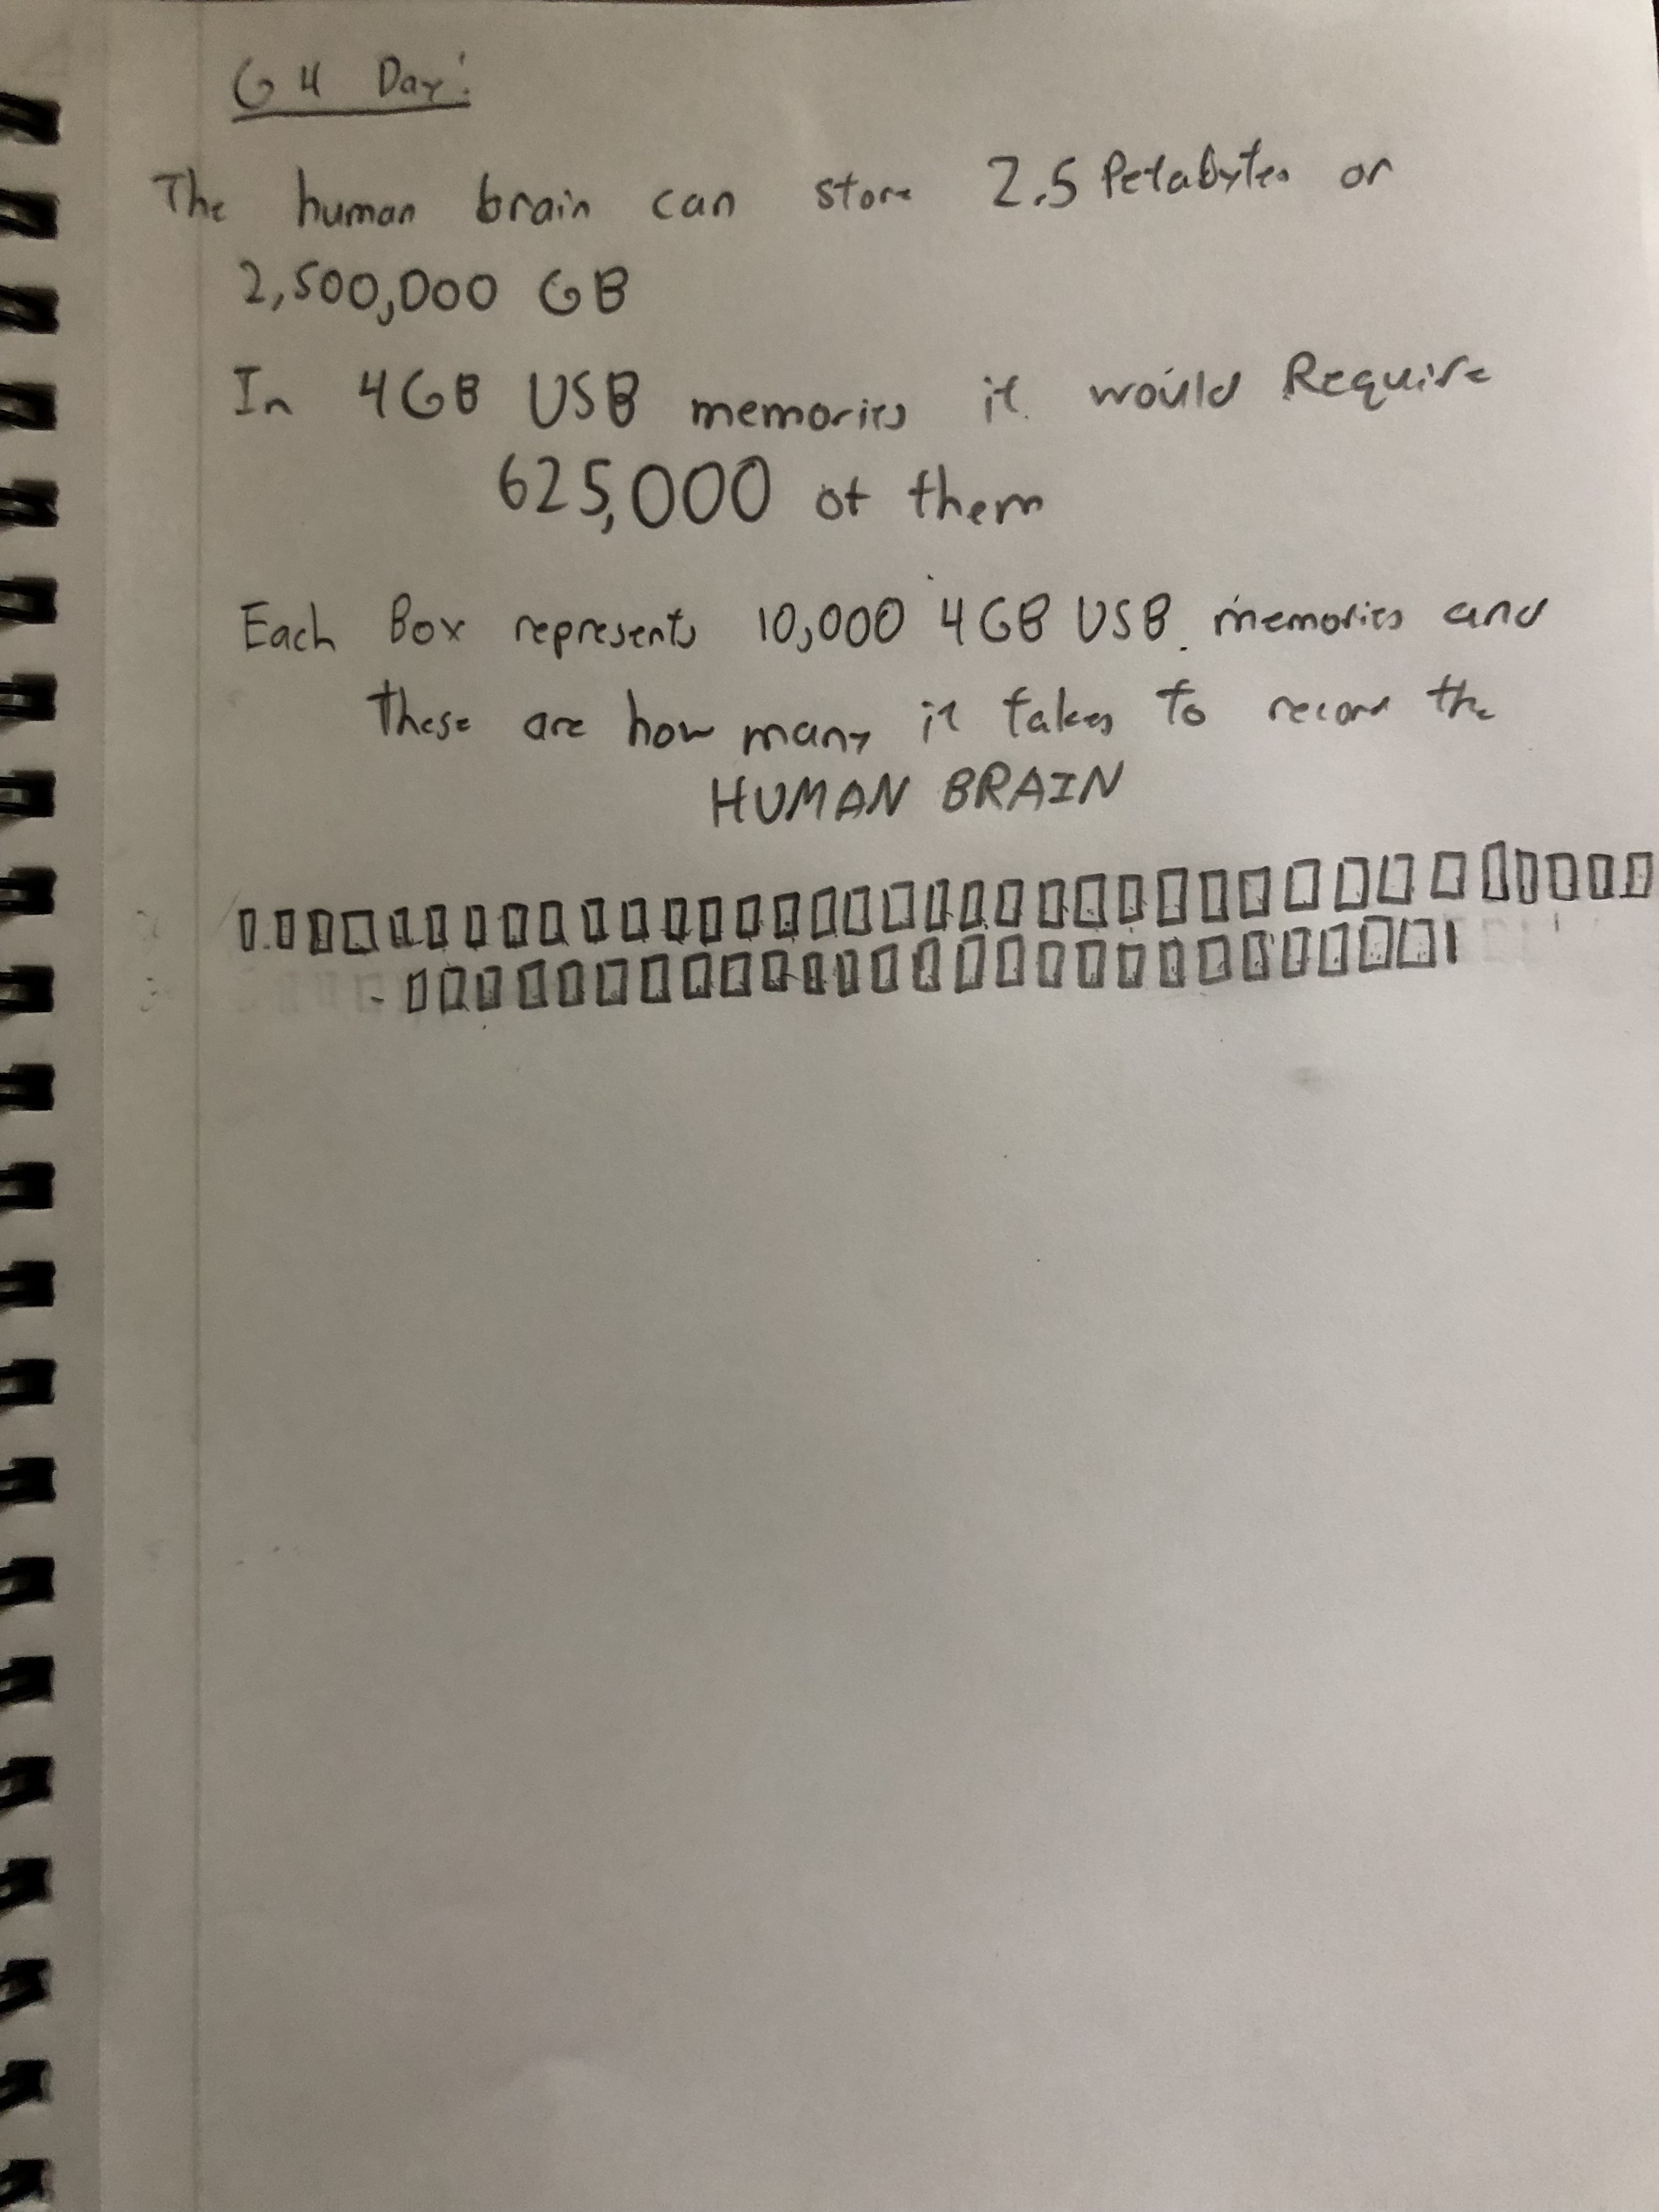 G4 Day:
The human brain can store 2.5 Petabytes or
2,500,000 GB
In 4GB USB memories it would Require
625,000 of them
Each Box represents 10,000 4GB USB memories and
These are how many it takes to record the
HUMAN BRAIN